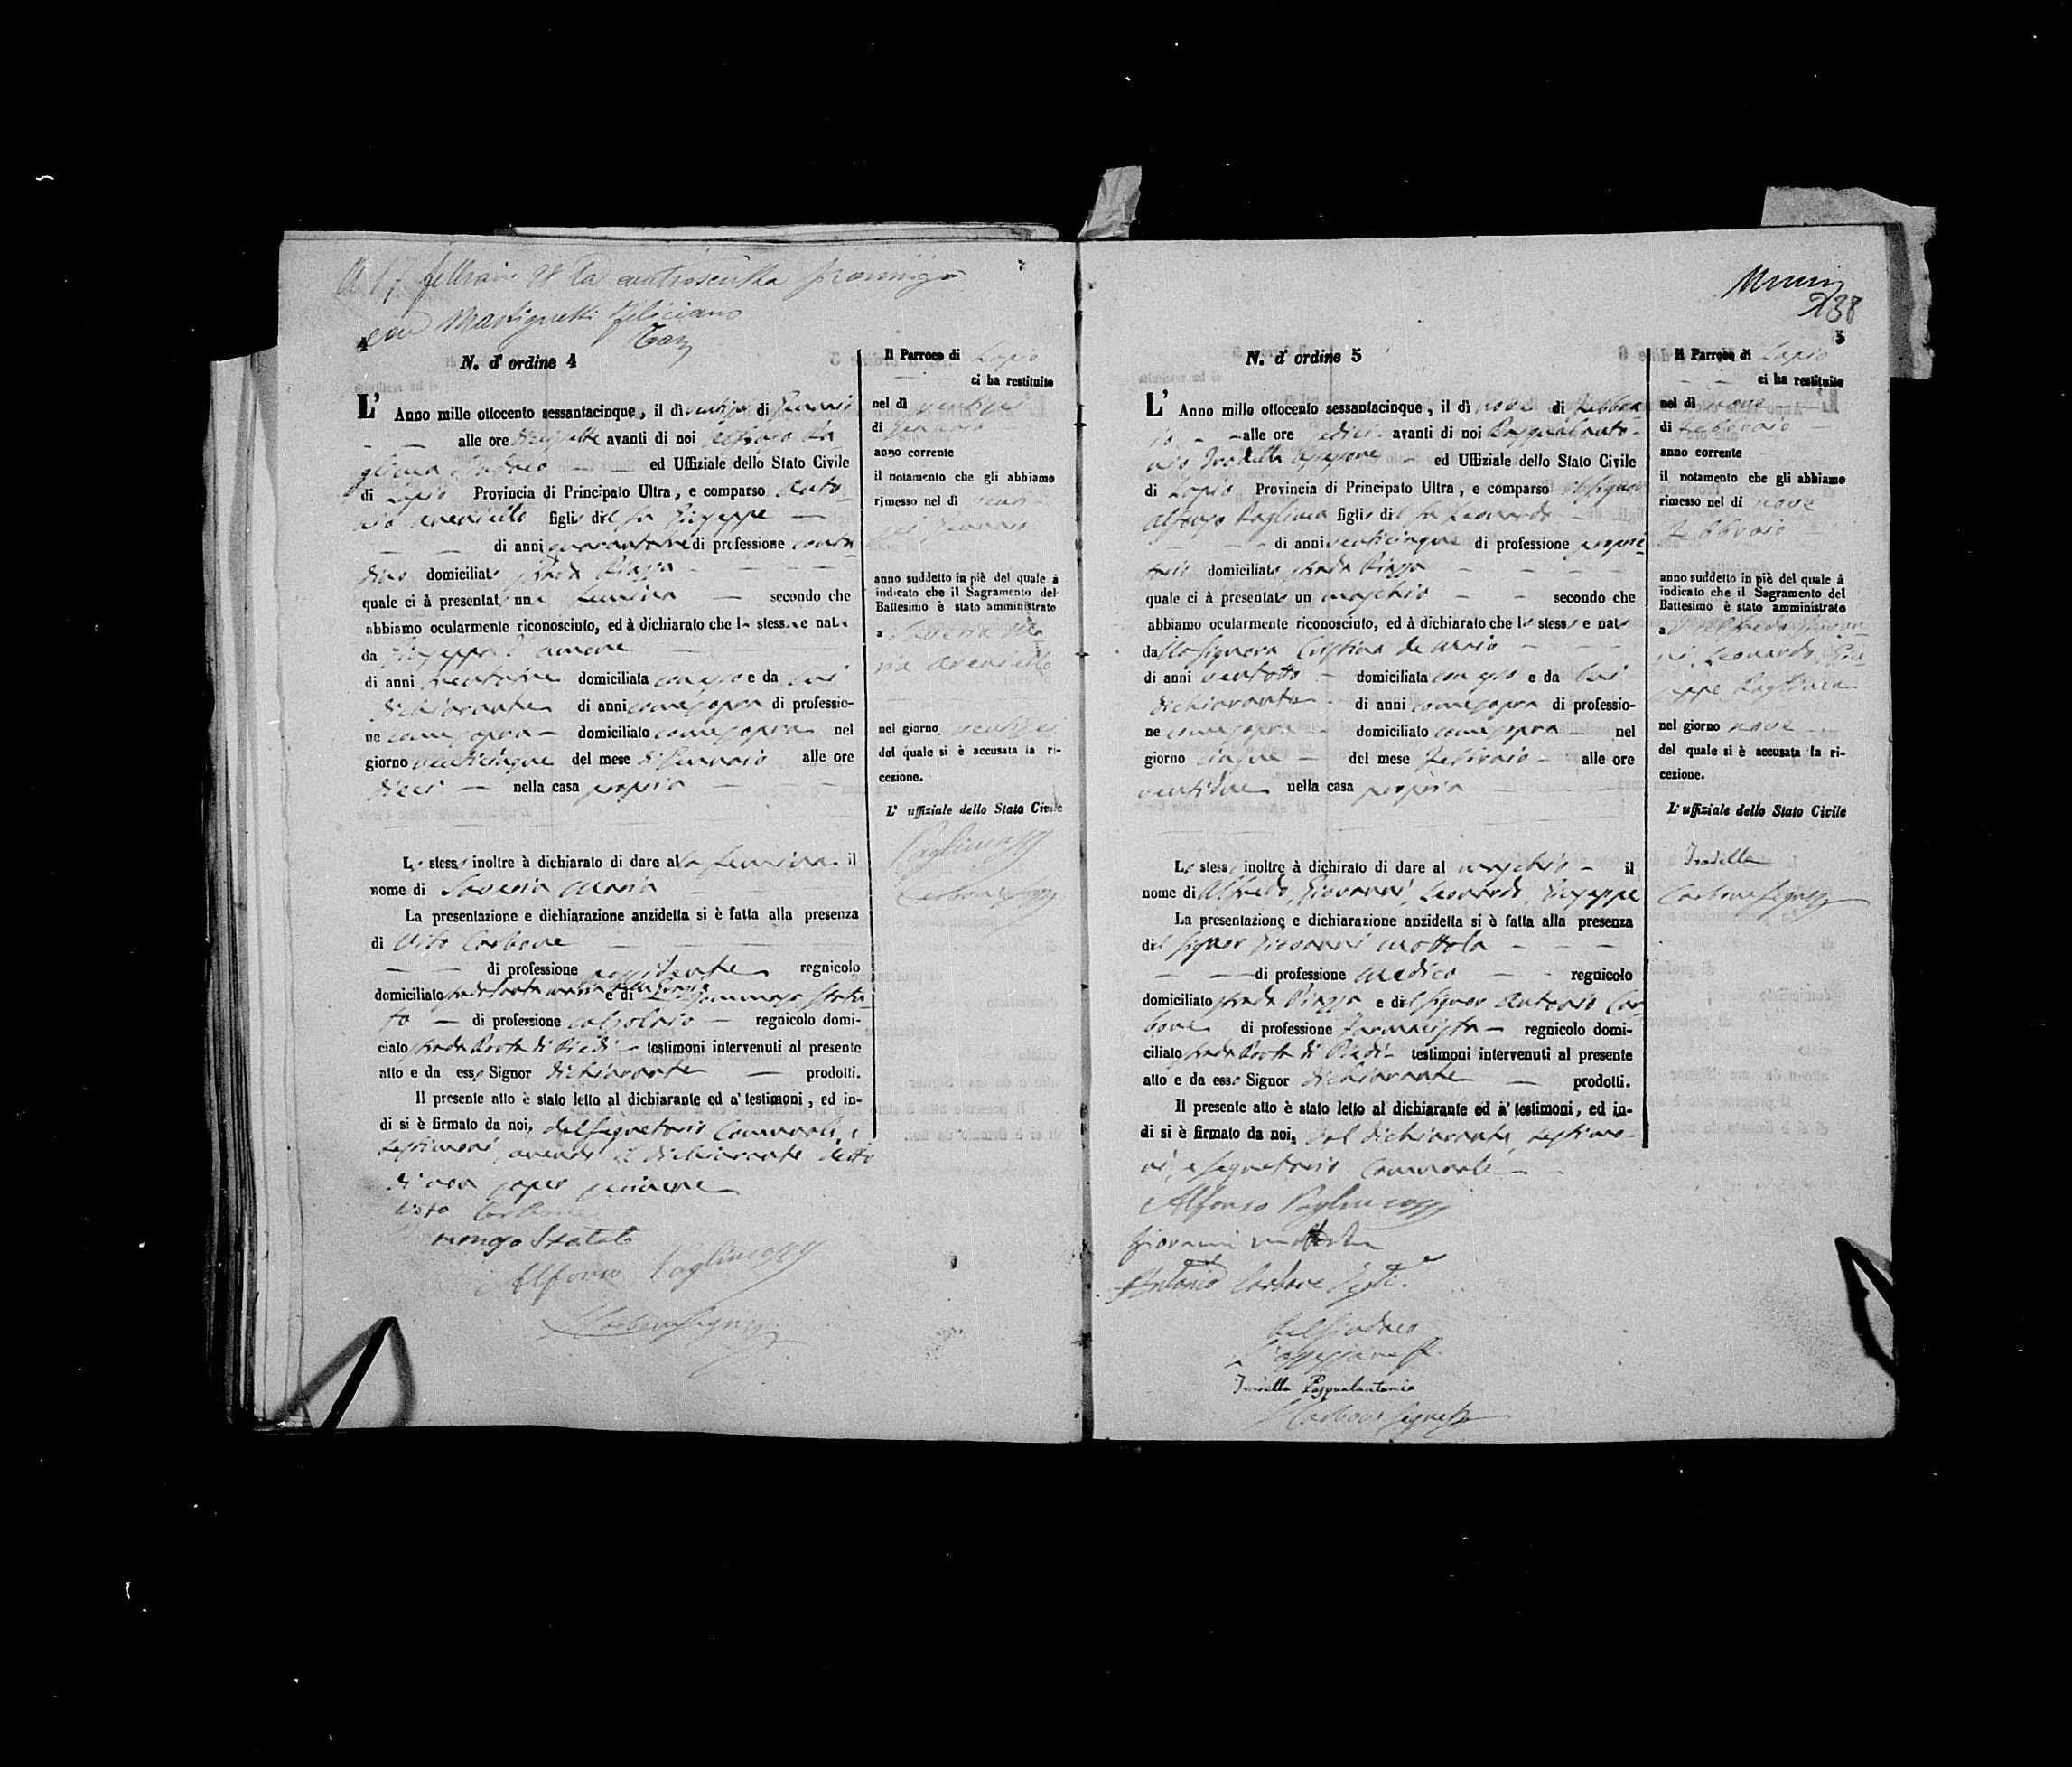 A 17 febbraio 98 la controscritta
con Martignetti Feliciano
4
N. d' ordine 4
L' Anno mille ottocento sessantacinque, il dì ventisei di Gennaio
— — alle ore avanti di noi Alfonso Pa-
gliuca Sindaco — — ed Uffiziale dello Stato Civile
di Lapio Provincia di Principato Ultra, e comparso Anto-
nio figlio del fu Giuseppe —
— — di anni di professione conta-
dino domiciliato strada Piazza — — — —
quale ci à presentata una femina — secondo che
abbiamo ocularmente riconosciuto, ed à dichiarato che la stessa e nata
da Giuseppa D'amore — — —
di anni domiciliata con esso e da lui
dichiarante di anni come sopra di professio-
ne come sopra — domiciliato come sopra nel
giorno venticinque del mese di Gennaio alle ore
dieci — nella casa propria — — —
Lo stesso inoltre à dichiarato di dare alla femina il
nome di Saveria Maria — —
La presentazione e dichiarazione anzidetta si è fatta alla presenza
di Vito Carbone — — —
— — di professione possidente regnicolo
domiciliato strada Santa Maria della Grazie e di Tommaso Stata-
to — di professione calzolaio — regnicolo domi-
ciato strada Porta di Piedi — testimoni intervenuti al presente
atto e da esso Signor dichiarante — prodotti.
Il presente atto è stato letto al dichiarante ed a' testimoni, ed in-
di si è firmato da noi, dal Segretario Comunale, e
testimoni, avendo il dichiarante detto
di non saper scrivere
Vito Carbone
Statuto
Alfonso Pagliuca
Carbone Seg
Il Parroco di Lapio
— — ci ha restituito
nel dì ventisei
di Gennaio
anno corrente
il notamento che gli abbiamo
rimesso nel dì venti-
sei Gennaio
anno suddetto in piè del quale à
indicato che il Sagramento del
Battesimo è stato amministrato
a Saveria Ma-
ria
nel giorno ventisei
del quale si è accusata la ri-
cezione.
L' uffiziale dello Stato Civile
Pagliuca
Carbone
238
5
N. d' ordine 5
L' Anno mille ottocento sessantacinque, il dì nove di Febbra-
io — — alle ore sedici avanti di noi Pasqualanto-
nio Assessore — ed Uffiziale dello Stato Civile
di Lapio Provincia di Principato Ultra, e comparso il Signor
Alfonso Pagliuca figlio del fu Leonardo —
— — — di anni venticinque di professione proprie-
tario domiciliato strada Piazza — — — —
quale ci à presentato un maschio — — secondo che
abbiamo ocularmente riconosciuto, ed à dichiarato che lo stesso e nato
dalla Signora Cristina de — — —
di anni ventotto — domiciliata con esso e da lui
dichiarante — di anni come sopra di professio-
ne come sopra — domiciliato come sopra nel
giorno cinque — del mese Febbraio — alle ore
ventidue nella casa propria — — —
Lo stesso inoltre à dichirato di dare al maschio — il
nome di Alfredo, Giovanni, Leonardo, Giuseppe
La presentazione e dichiarazione anzidetta si è fatta alla presenza
del Signor Giovanni Mottola — — —
— — di professione Medico — — regnicolo
domiciliato strada Piazza e del Signor Antonio Car-
bone di professione Farmacista — regnicolo domi-
ciliato strada Porta di Piedi — testimoni intervenuti al presente
atto e da esso Signor dichiarante — prodotti.
Il presente atto è stato letto al dichiarante ed a' testimoni, ed in-
di si è firmato da noi, dal dichiarante, testimo-
ni, e Segretario Comunale —
Alfonso Pagliuca
Giovanni Mottola
Antonio Carbone
Pel Sindaco
L'assessore
Pasqualantonio
Carbone Seg
Il Parroco di Lapio
— — ci ha restituito
nel dì nove —
di Febbraio —
anno corrente
il notamento che gli abbiamo
rimesso nel dì nove
Febbraio —
anno suddetto in piè del quale à
indicato che il Sagramento del
Battesimo è stato amministrato
a Alfredo Giovan-
ni, Leonardo, Giu-
seppe Pagliuca
nel giorno nove —
del quale si è accusata la ri-
cezione.
L' uffiziale dello Stato Civile
Carbone